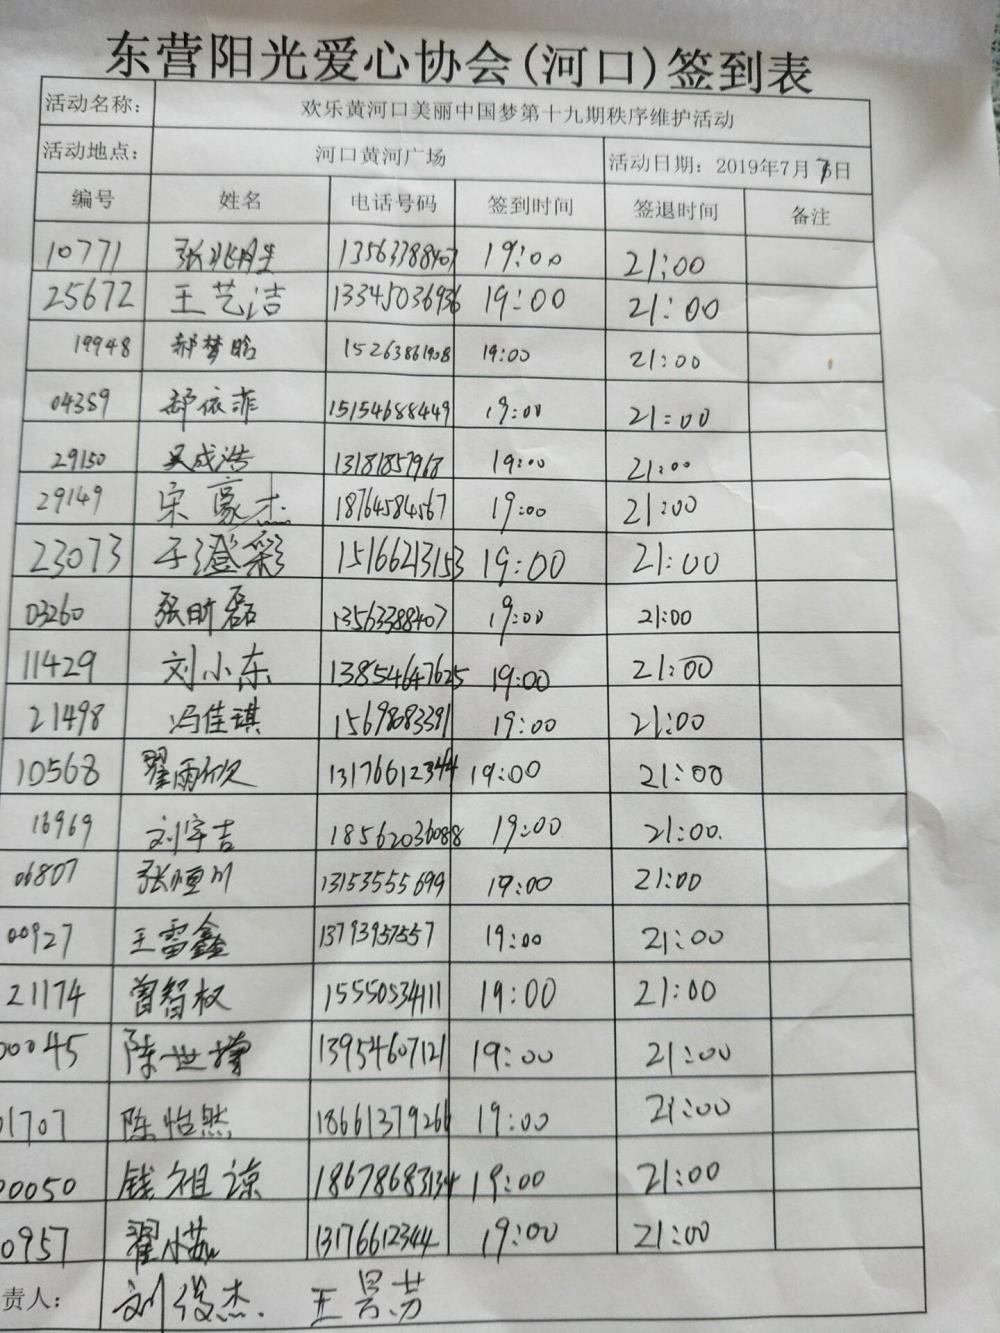 东营阳光爱心协会(河口)签到表
活动名称: 欢乐黄河口美丽中国梦第十九期秩序维护活动
活动地点: 河口黄河广场 活动日期: 2019年7月 日
编号 姓名 电话号码 签到时间 签退时间 备注
10771 张兆 13563388407 19:00 21:00
25672 王艺洁 13345036936 19:00 21:00
19948 郝梦晗 15263861908 19:00 21:00
04389 郝依菲 15154688449 19:00 21:00
29150 吴成浩 13181857968 19:00 21:00
29149 宋豪杰 18764584567 19:00 21:00
23073 于澄彩 15166213153 19:00 21:00
03260 张昕磊 13563388407 19:00 21:00
11429 刘小东 13854647625 19:00 21:00
21498 冯佳琪 15698083391 19:00 21:00
10568 翟雨欣 13176612344 19:00 21:00
16969 刘宇吉 18562036088 19:00 21:00.
06807 张恒川 13153555699 19:00 21:00
00927 王雷鑫 13793957557 19:00 21:00
21174 曾智权 15550534111 19:00 21:00
00045 陈世 13954607121 19:00 21:00
01707 陈怡然 18661379266 19:00 21:00
00050 钱祖谅 18678683134 19:00 21:00
0957 翟小茹 13176612344 19:00 21:00
责人: 刘俊杰. 王 芳